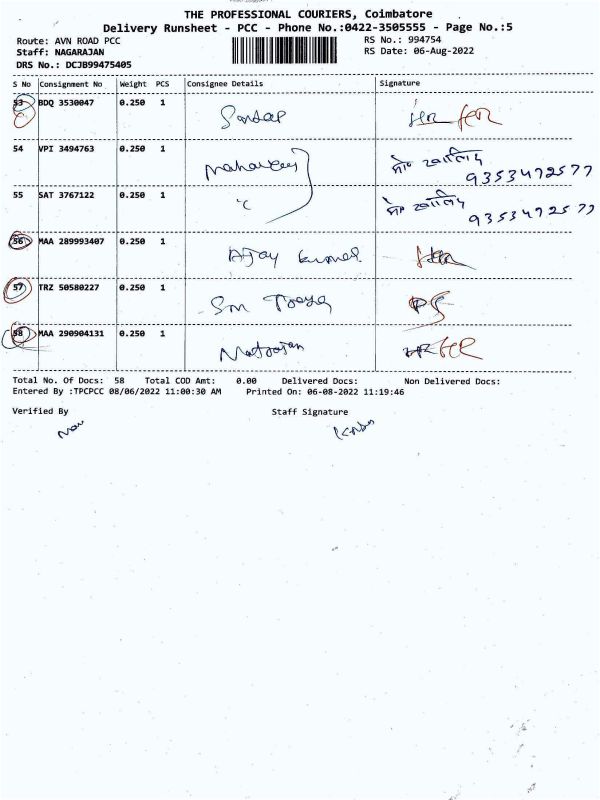 THE PROFESSIONAL COURIERS, Coimbatore
Delivery Runsheet - PCC - Phone No.:0422-3505555 - Page No.:5
Route: AVN ROAD PCC RS No.: 994754
Staff: NAGARAJAN RS Date: 06-Aug-2022
DRS No.: DCJB99475405
S No Consignment No Weight PCS Consignee Details Signature
53 BDQ 3530047 0.250 1
54 VPI 3494763 0.250 1
9353472577
55 SAT 3767122 0.250 1
9353472577
56 MAA 289993407 0.250 1 Ajay Kumar
57 TRZ 50580227 0.250 1 Sm
58 MAA 290904131 0.250 1 Natrajan
Total No. Of Docs: 58 Total COD Amt: 0.00 Delivered Docs: Non Delivered Docs:
Entered By :TPCPCC 08/06/2022 11:00:30 AM Printed On: 06-08-2022 11:19:46
Verified By Staff Signature